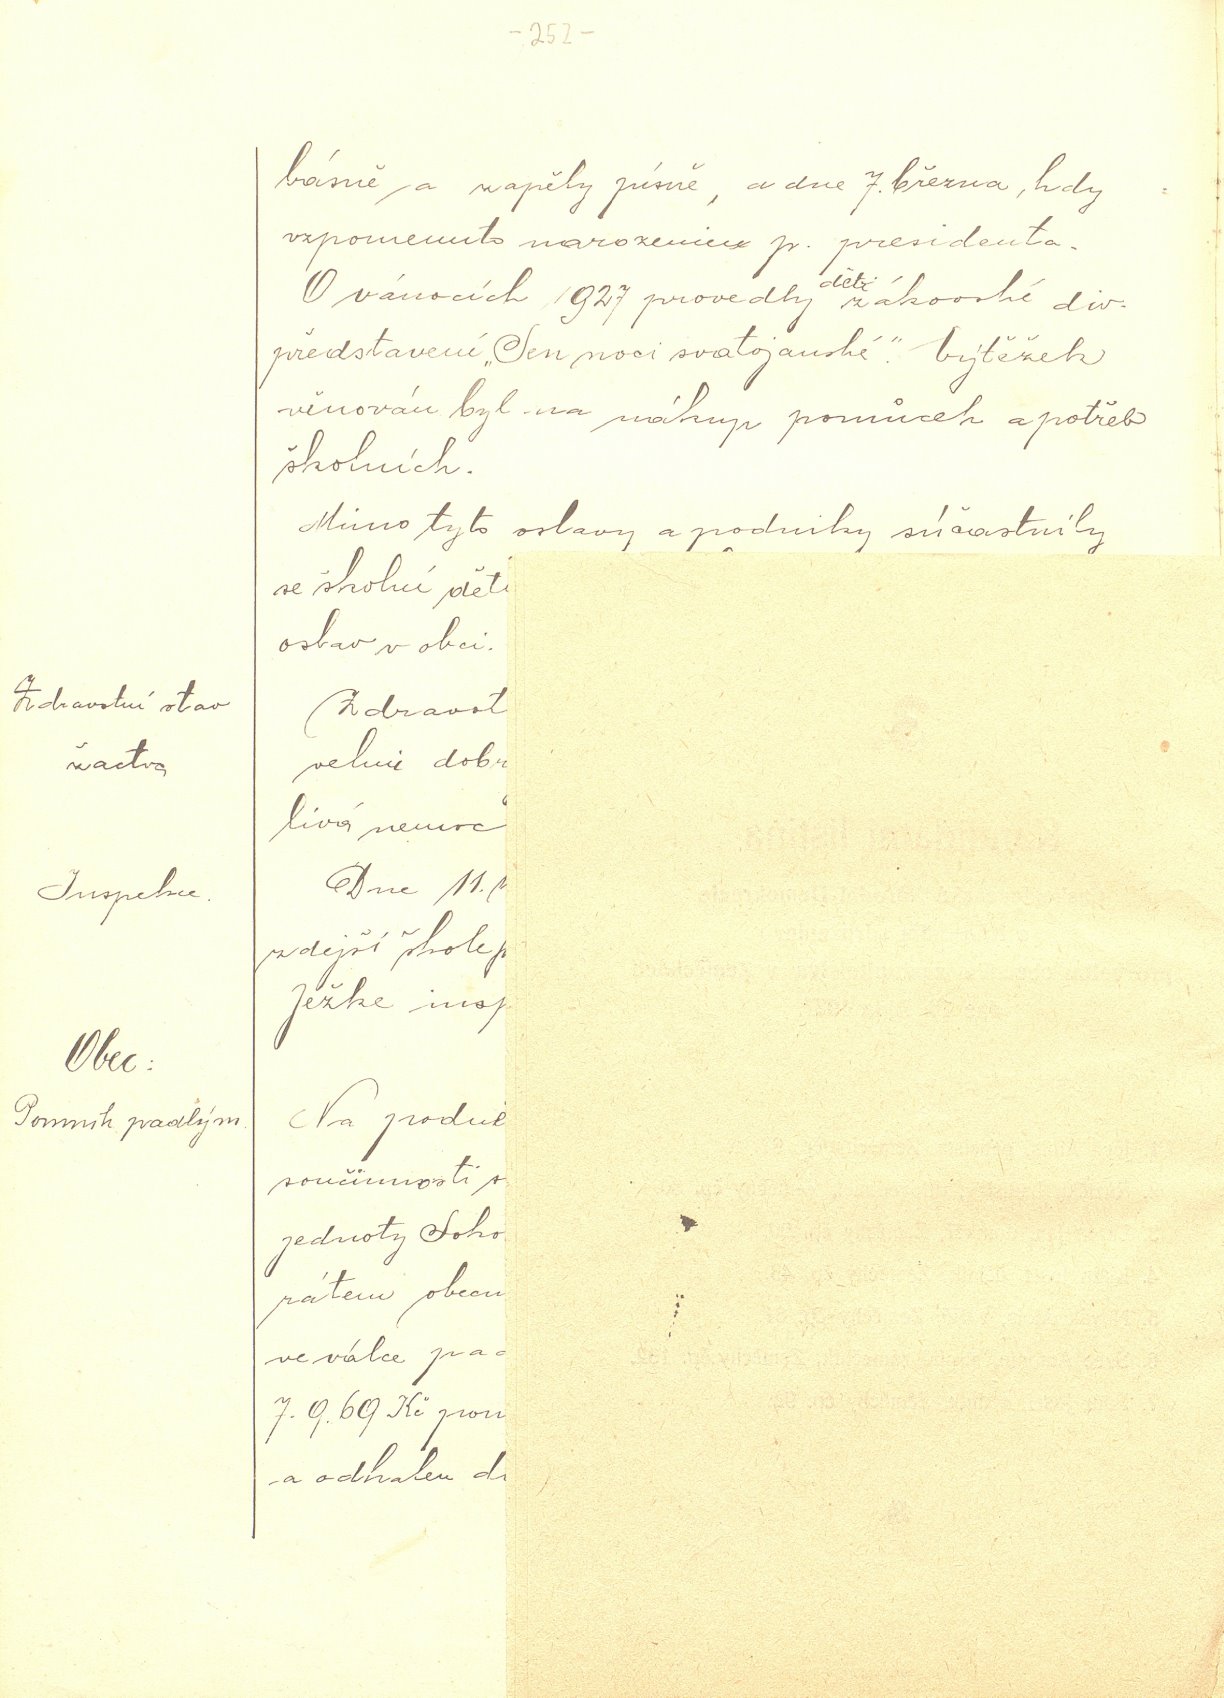 - 252 -
básně a zapěly písně, a dne 7. března, kdy
vzpomenuto narozenin p. presidenta.
děti
O vánocích 1927 provedly žákovské div.
představení „Sen noci svatojanské". Výtěžek
věnován byl na nákup pomůcek a potřeb
školních.
Mimo tyto oslavy a podniky súčastnily
se školní děti
oslav v obci.
Zdravotní stav
žactva
Zdravot
velmi dobr
livá nemoc
Inspekce.
Dne 11.
zdejší škole p
Ježke insp
Obec:
Pomník padlým.
Na podně
součinnosti s
jednoty Soko
rátem obecn
ve válce pad
7.969 Kč pom
a odhalen dn